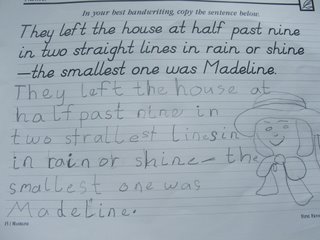 In your best handwriting, copy the sentence below.
They left the house at half past nine
in two straight lines in rain or shine
—the smallest one was Madeline.
They left the house at
half past nine in
two strallest lines in
in rain or shine— the
smallest one was
Madeline.